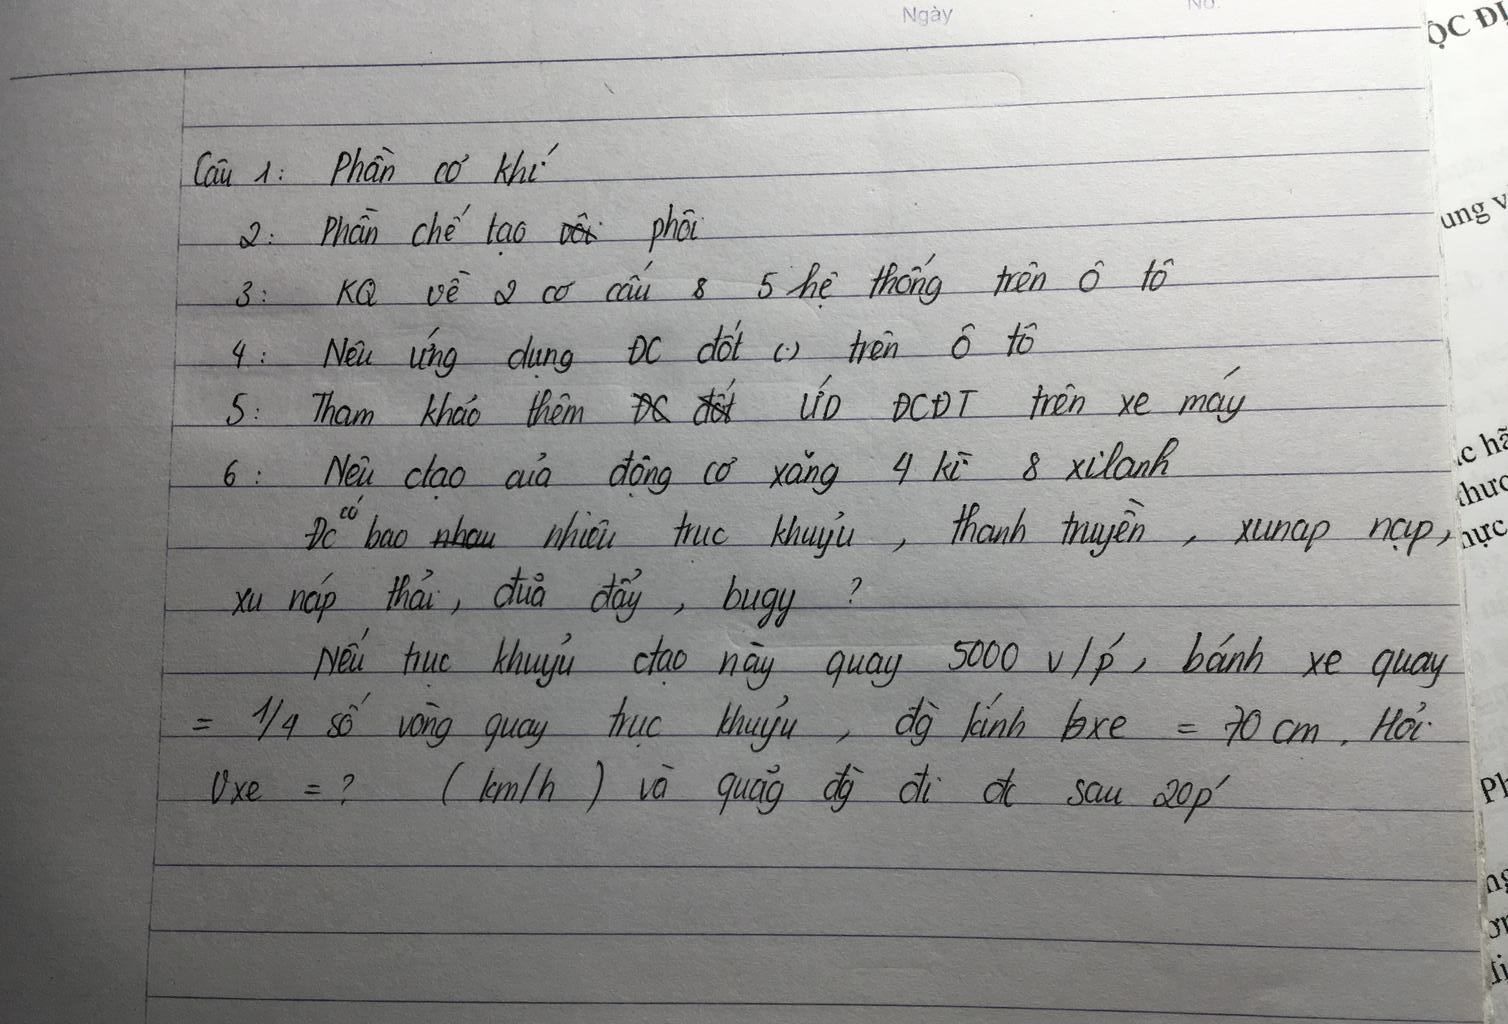 Ngày
No.
ỘC ĐỊ
Câu 1: Phần cơ khí
2: Phần chế tạo phôi
ung v
3: KQ về 2 cơ cấu 8 5 hệ thống trên ô tô
4: Nêu ứng dụng ĐC đốt (.) trên ô tô
5: Tham khảo thêm ƯD ĐCĐT trên xe máy
6: Nêu ctạo của động cơ xăng 4 kì 8 xilanh
Đc có bao nhiêu trục khuỷu, thanh truyền, xunap nạp,
xu náp thải, đũa đẩy, bugy ?
Nếu trục khuỷu ctạo này quay 5000 v/p, bánh xe quay
= 1/4 số vòng quay trục khuỷu, đg kính bxe = 70 cm. Hỏi
Vxe = ? (km/h) và quãg đg đi đc sau 20p'
Ph